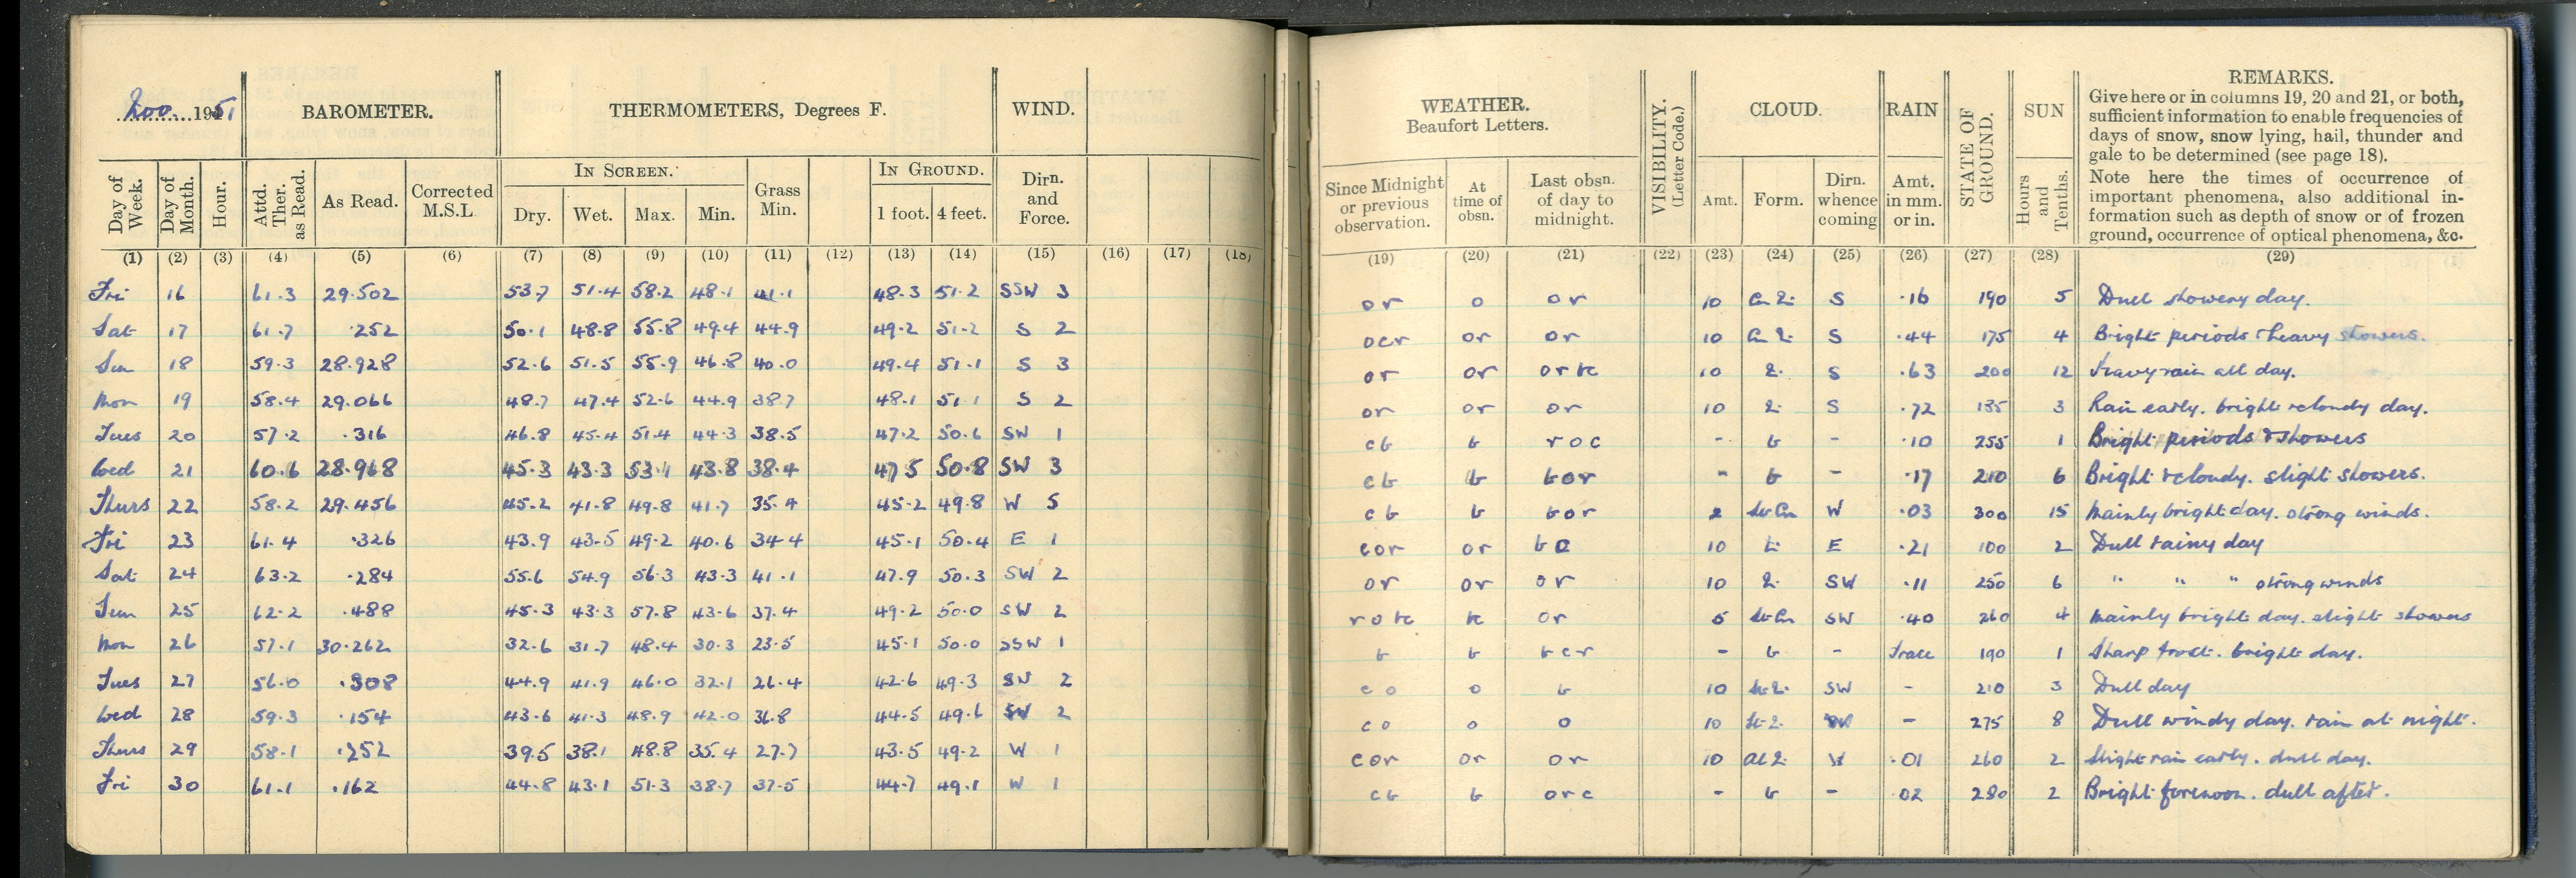 Nov. 1951 BAROMETER. THERMOMETERS, Degrees F. WIND.
IN SCREEN. IN GROUND.
Day of Week. Day of Month. Hour. Attd. Ther. as Read. As Read. Corrected M.S.L. Dry. Wet. Max. Min. Grass Min. 1 foot. 4 feet. Dirn. and Force.
(1) (2) (3) (4) (5) (6) (7) (8) (9) (10) (11) (12) (13) (14) (15) (16) (17) (18)
Fri 16 61.3 29.502 53.7 51.4 58.2 48.1 41.1 48.3 51.2 SSW 3
Sat 17 61.7 .252 50.1 48.8 55.8 49.4 44.9 49.2 51.2 S 2
Sun 18 59.3 28.928 52.6 51.5 55.9 46.8 40.0 49.4 51.1 S 3
Mon 19 58.4 29.066 48.7 47.4 52.6 44.9 38.7 48.1 51.1 S 2
Tues 20 57.2 .316 46.8 45.4 51.4 44.3 38.5 47.2 50.6 SW 1
Wed 21 60.6 28.968 45.3 43.3 53.1 43.8 38.4 47.5 50.8 SW 3
Thurs 22 58.2 29.456 45.2 41.8 49.8 41.7 35.4 45.2 49.8 W 5
Fri 23 61.4 .326 43.9 43.5 49.2 40.6 34.4 45.1 50.4 E 1
Sat 24 63.2 .284 55.6 54.9 56.3 43.3 41.1 47.9 50.3 SW 2
Sun 25 62.2 .488 45.3 43.3 57.8 43.6 37.4 49.2 50.0 SW 2
Mon 26 57.1 30.262 32.6 31.7 48.4 30.3 23.5 45.1 50.0 SSW 1
Tues 27 56.0 .308 44.9 41.9 46.0 32.1 26.4 42.6 49.3 SW 2
Wed 28 59.3 .154 43.6 41.3 48.9 42.0 36.8 44.5 49.6 SW 2
Thurs 29 58.1 .252 39.5 38.1 48.8 35.4 27.7 43.5 49.2 W 1
Fri 30 61.1 .162 44.8 43.1 51.3 38.7 37.5 44.7 49.1 W 1
WEATHER. Beaufort Letters. VISIBILITY. (Letter Code.) CLOUD. RAIN STATE OF GROUND. SUN REMARKS.
Give here or in columns 19, 20 and 21, or both,
sufficient information to enable frequencies of
days of snow, snow lying, hail, thunder and
gale to be determined (see page 18).
Note here the times of occurrence of
important phenomena, also additional in-
formation such as depth of snow or of frozen
ground, occurrence of optical phenomena, &c.
Since Midnight or previous observation. At time of obsn. Last obsn. of day to midnight. Amt. Form. Dirn. whence coming Amt. in mm. or in. Hours and Tenths.
(19) (20) (21) (22) (23) (24) (25) (26) (27) (28) (29)
or o or 10 S .16 190 5 Dull showery day.
ocr or or 10 S .44 175 4 Bright periods & heavy showers.
or or 10 S .63 200 12 Heavy rain all day.
or or or 10 S .72 3 Rain early. bright & cloudy day.
cb b roc - b - .10 255 1 Bright periods & showers
cb b bor - b - .17 210 6 Bright & cloudy. slight showers.
cb b bor 2 W .03 300 15 Mainly bright day. strong winds.
cor or 10 E .21 100 2 Dull rainy day
or or or 10 SW .11 250 6 " " " strong winds
5 SW .40 260 4 Mainly bright day. slight showers
b b bcr - b - Trace 190 1 Sharp frost. bright day.
co o b 10 SW - 210 3 Dull day
co o o 10 - 275 8 Dull windy day. rain at night.
cor or or 10 W .01 260 2 Slight rain early. dull day.
cb b orc - b - 02 280 2 Bright forenoon. dull after.